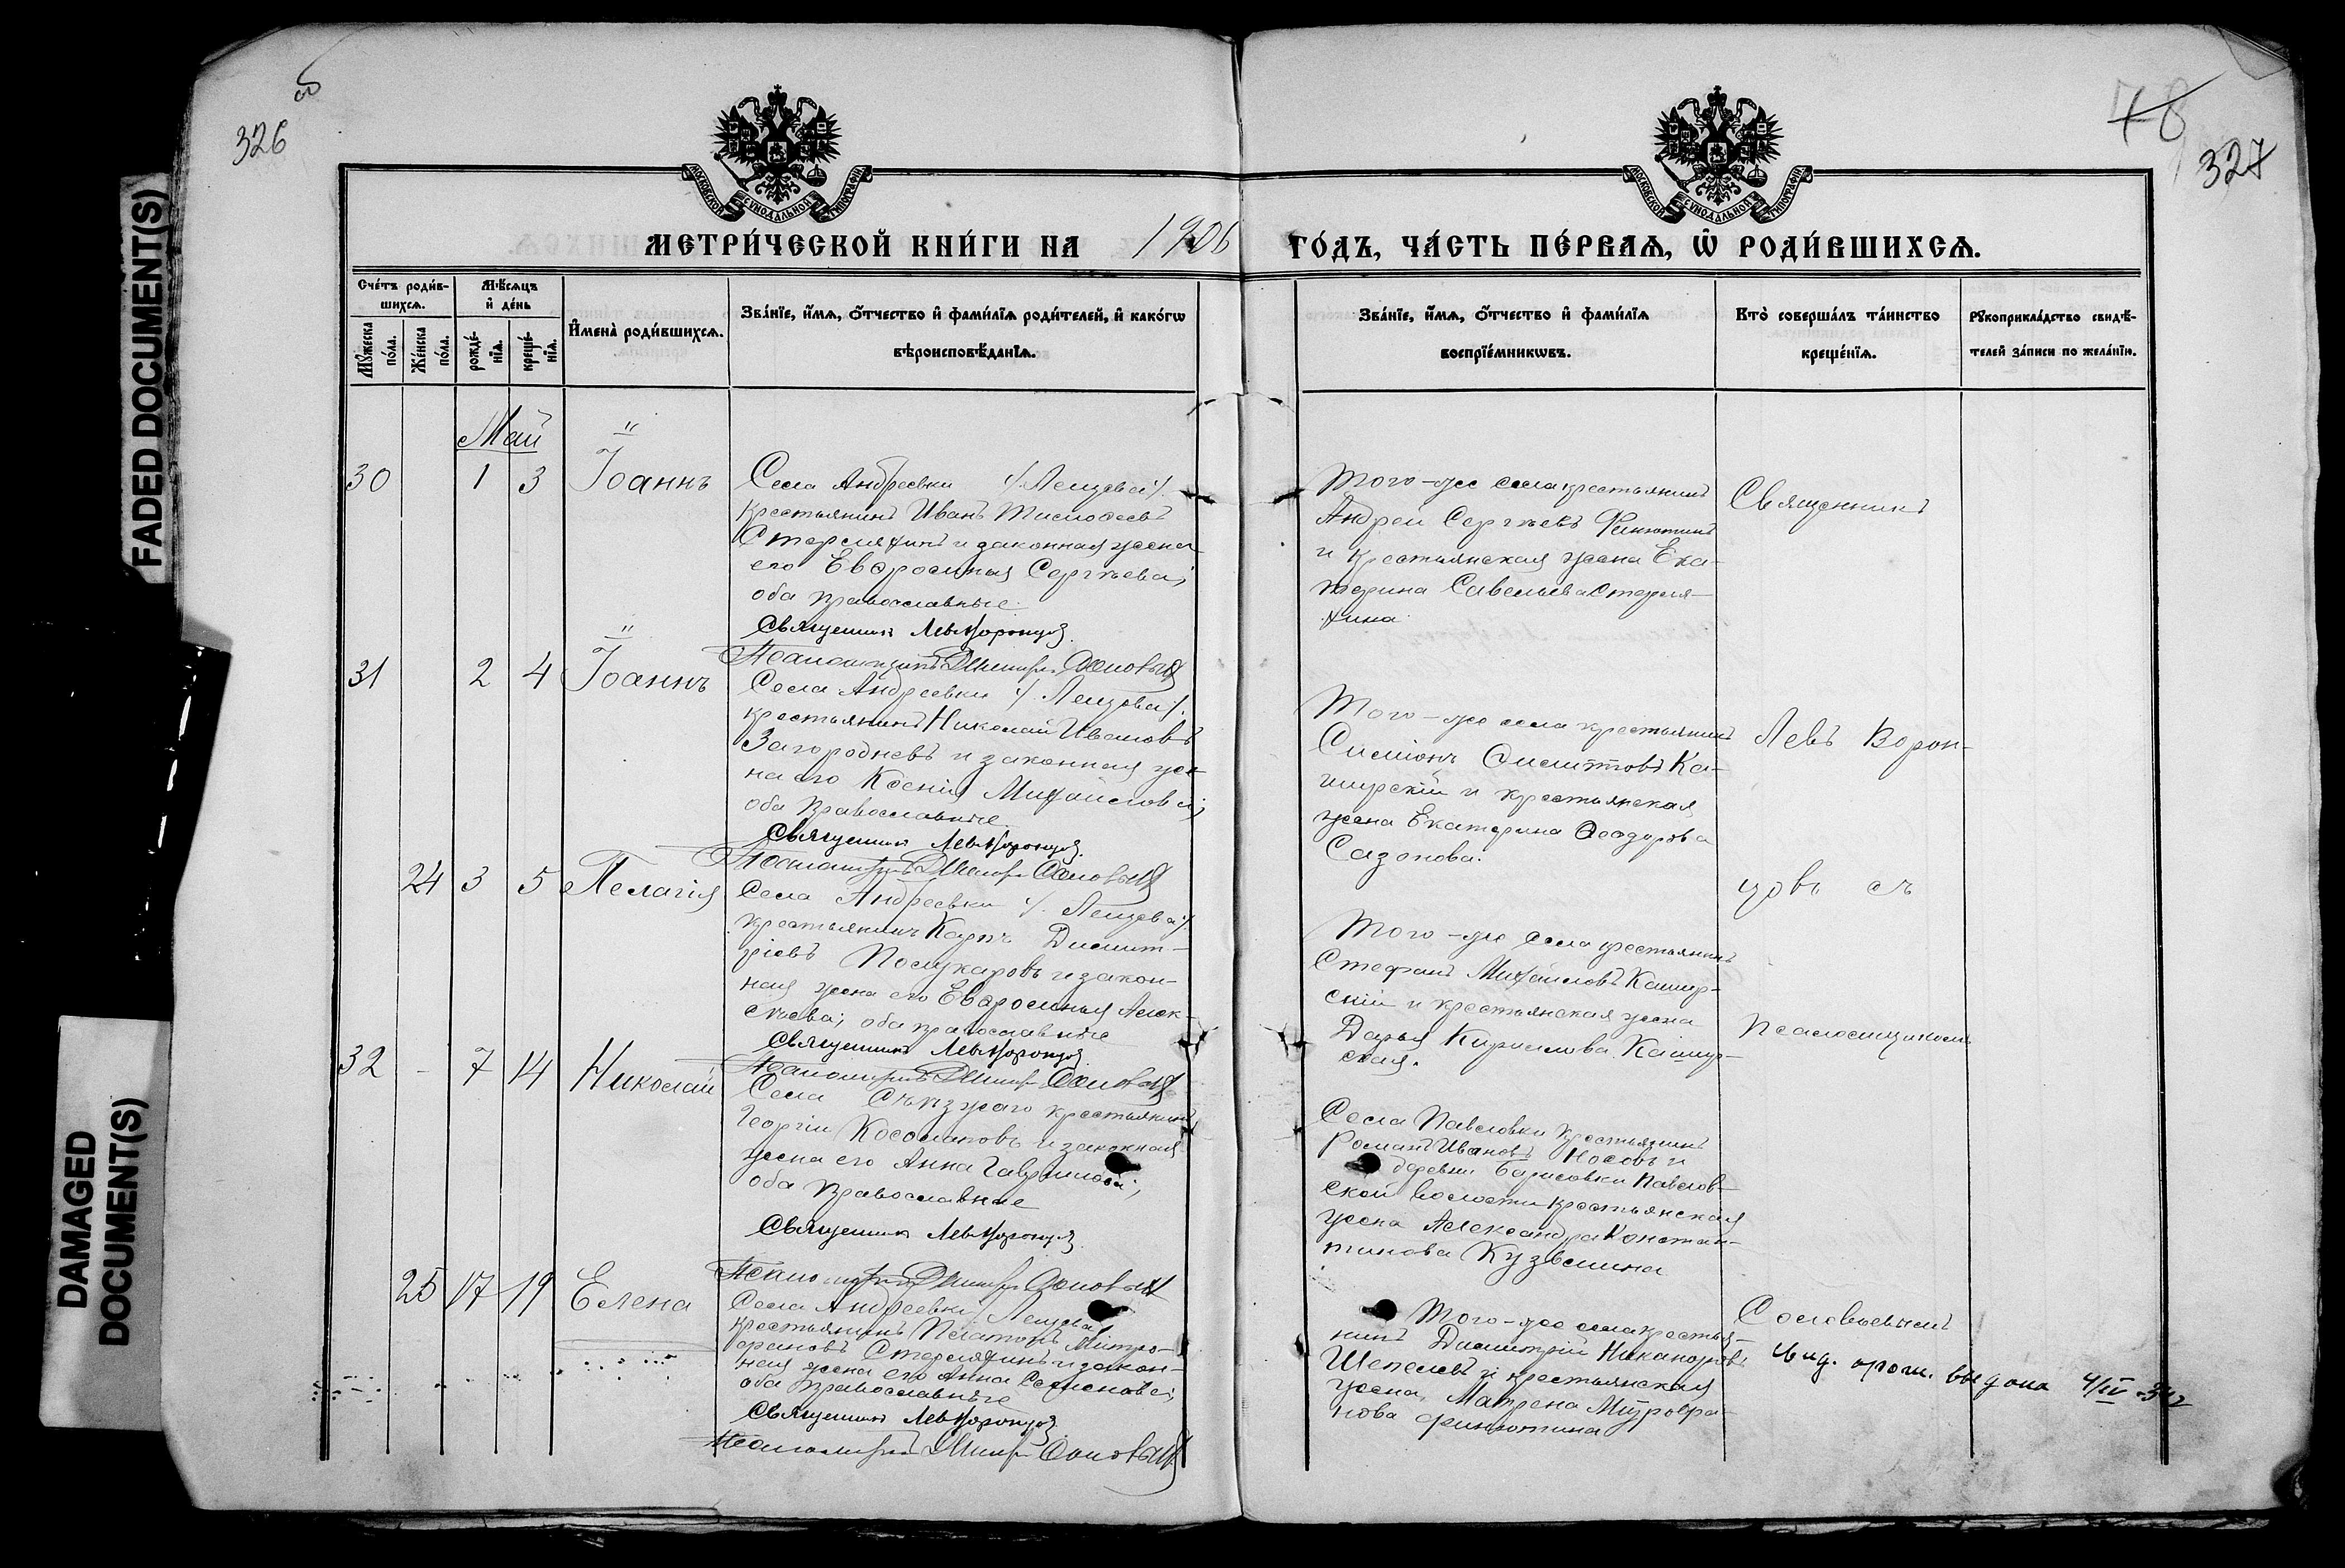 326
78
327
МОСКОВСКОЙ СУНОДАЛЬНОЙ ТИПОГРАФІИ
МОСКОВСКОЙ СУНОДАЛЬНОЙ ТИПОГРАФІИ
МЕТРИ́ЧЕСКОЙ КНИ́ГИ НА 1906 ГО́ДЪ, ЧА́СТЬ ПЕ́РВАѦ, Ѡ҆ РОДИ́ВШИХСѦ.
Сче́тъ роди́в-
шихсѧ.
Мꙋжеска по́ла.
Же́нска по́ла.
Мѣ́сѧцъ
и҆ де́нь
рожде́-
нїѧ.
креще́-
нїѧ.
И҆мена̀ роди́вшихсѧ.
Зва́нїе, и҆́мѧ, ѻ҆́тчество и҆ фами́лїѧ роди́телей, и҆ како́гѡ
вѣроисповѣ́данїѧ.
Зва́нїе, и҆́мѧ, ѻ҆́тчество и҆ фами́лїѧ
воспрїе́мникѡвъ.
Кто̀ соверша́лъ та́инство
креще́нїѧ.
Рꙋкоприкла́дство свидѣ́-
телей за́писи по жела́нїю.
Май
30 1 3 Іоаннъ
Села Андреевки
крестьянинъ Иванъ Тимофеевъ
Стерляхинъ и законная жена
его Евфросинія Сергѣева;
оба православные.
Священникъ Левъ Воронцовъ.
Псаломщикъ Дмитрій Соловьевъ
Того-же села крестьянинъ
Андрей Сергѣевъ Финютинъ
и крестьянская жена Ека-
терина Савельева Стерля-
хина.
Священникъ
31 2 4 Іоаннъ
Села Андреевки
крестьянинъ Николай Ивановъ
Загородневъ и законная же-
на его Ксенія Михайлова;
оба православные.
Священникъ Левъ Воронцовъ.
Псаломщикъ Дмитрій Соловьевъ
Того-же села крестьянинъ
Симіонъ Ка-
ширскій и крестьянская
жена Екатерина Ѳеодорова
Сазонова.
Левъ Ворон-
24 3 5 Пелагія
Села Андреевки
крестьянинъ Карпъ Димит-
ріевъ Послукаровъ и закон-
ная жена его Евфросинія Алек-
сѣева; оба православные
Священникъ Левъ Воронцовъ.
Псаломщикъ Дмитрій Соловьевъ
Того-же села крестьянинъ
Стефанъ Михайловъ Кашир-
скій и крестьянская жена
Дарья Кириллова Кашир-
ская.
цовъ съ
псаломщикомъ
32 - 7 14 Николай
Села крестьянинъ
Георгій Косолаповъ и законная
жена его Анна Гаврилова;
оба православные
Священникъ Левъ Воронцовъ.
Псаломщикъ Дмитрій Соловьевъ
Села Павловки крестьянинъ
Романъ Ивановъ Носовъ и
деревни Борисовки Павлов-
ской волости крестьянская
жена Александра Констан-
тинова Кузьмина
25 17 19 Елена
Села Андреевки
крестьянинъ Платонъ Митро-
фановъ Стерляхинъ и закон-
ная жена его Анна Семенова;
оба православные
Священникъ Левъ Воронцовъ.
Псаломщикъ Дмитрій Соловьевъ
Того-же села крестья-
нинъ Димитрій Никаноровъ
Шепелевъ и крестьянская
жена Матрена Митрофа-
нова Финютина
Соловьевымъ
выдана 4/IV
FADED DOCUMENT(S)
DAMAGED
DOCUMENT(S)